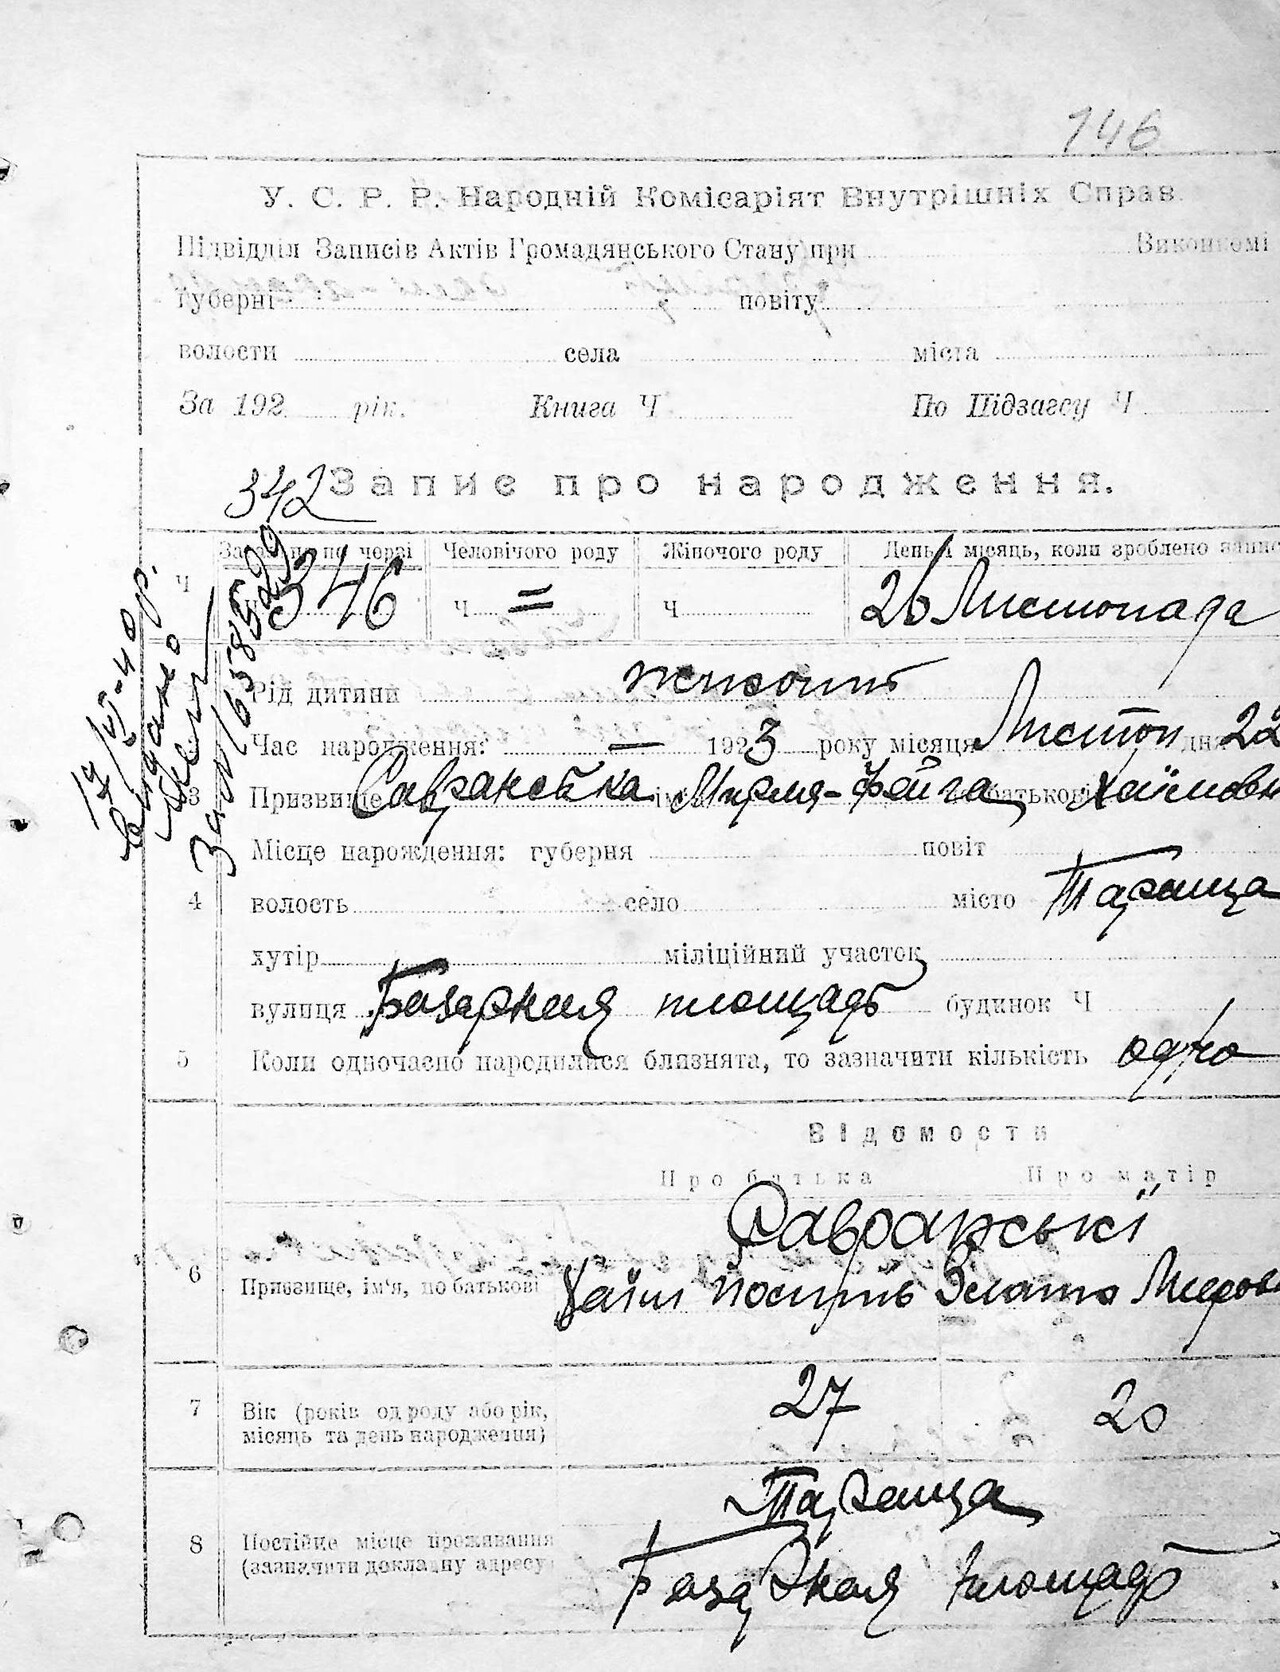 146
У. С. Р. Р. Народній Комісаріят Внутрішніх Справ.
Підвідділ Записів Актів Громадянського Стану при Виконкомі
губерні повіту
волости села міста
За 192 рік. Книга Ч По Підзагсу Ч
342 Запис про народження.
Загальне по черзі Человічого роду Жіночого роду День і місяць, коли зроблено запис
Ч 346 Ч = Ч 26 Листопада
Рід дитини жіночит
Час народження: — 1923 року місяця Листоп дня 22
3 Призвище Савранська ім'я Мирля-Фейга по батькові Хаїмовн
Місце нарождення: губерня повіт
4 волость село місто Тараща
хутір міліційний участок
вулиця Базарная площадь будинок Ч
5 Коли одночасно народилися близнята, то зазначити кількість одно
17/IV-40 р.
Видано
За № 1658529
Відомости
Про батька Про матір
Савранські
6 Призвище, ім'я, по батькові Хаїм Злата
7 Вік (років од роду або рік, 27 20
місяць та день народження)
Тараща
8 Постійне місце проживання
(зазначити докладну адресу Базарная площадь